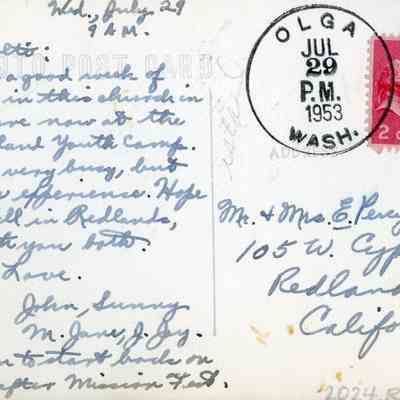 Wed., July 29
9 A.M.
PHOTO POST CARD
a good week of
in this church in
are now at the
land Youth Camp.
very busy, but
experience. Hope
all in Redlands,
you both.
Love.
John, Sunny
M. Jane, J. Jay.
to start back on
after Mission Fest.
OLGA
JUL
29
P.M.
1953
WASH.
2
Mr. & Mrs. E. Percy
105 W. Cyp
Redland
Califo
2024.